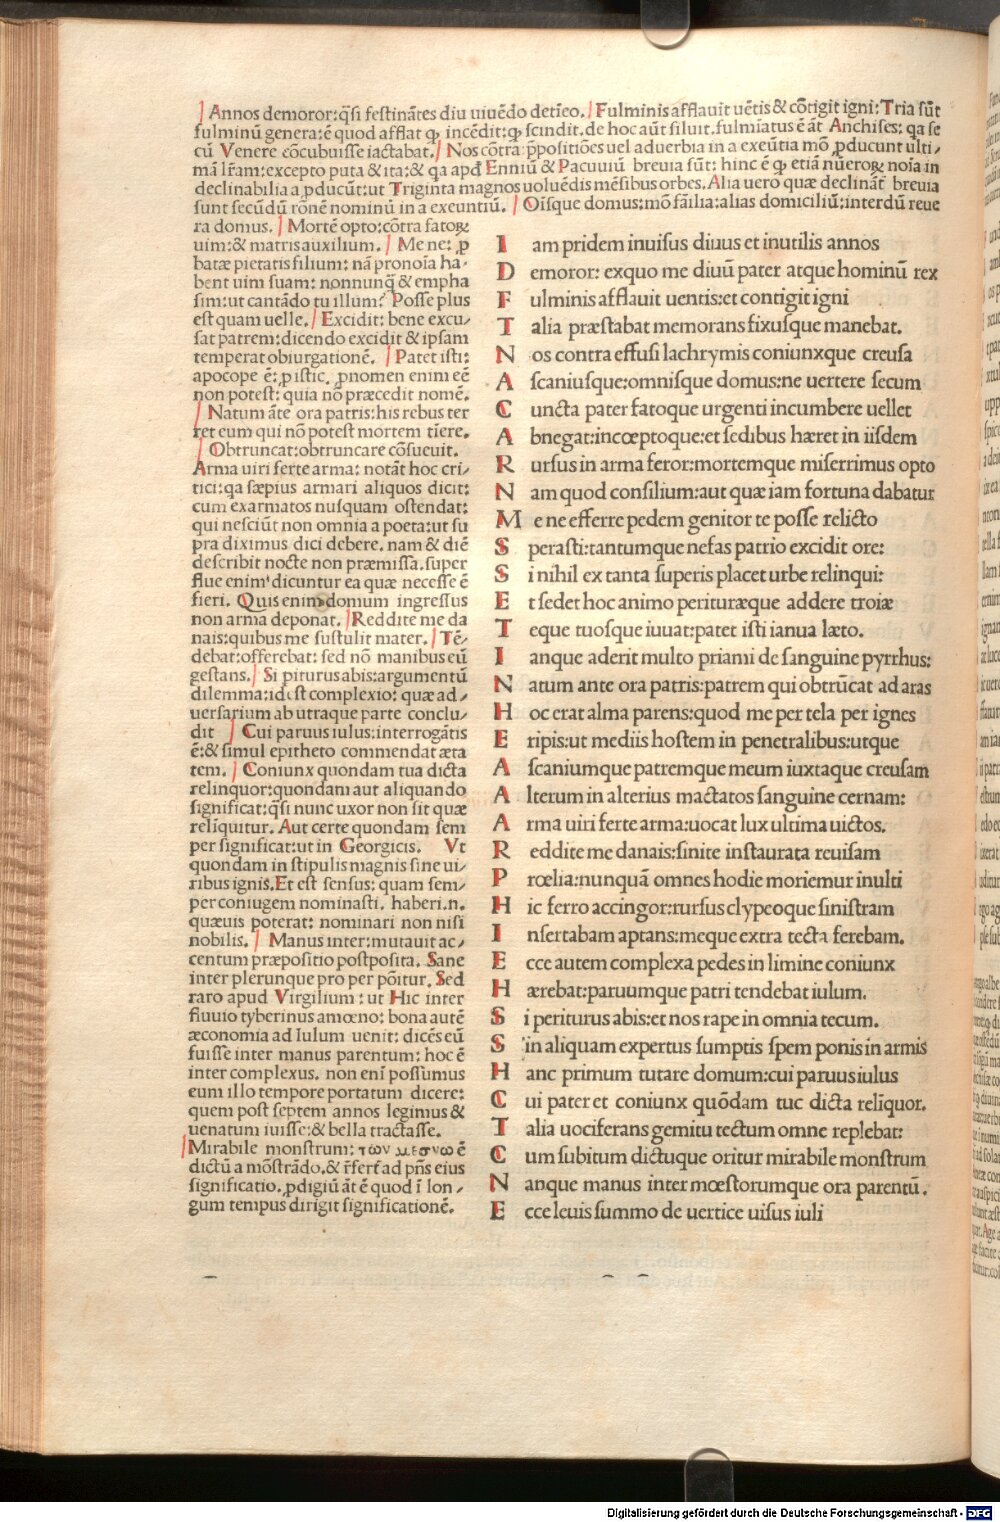 Annos demoror:q̃si festinãtes diu uiuẽdo detĩeo. Fulminis afflauit uẽtis & cõtigit igni: Tria sũt
fulminũ genera: ẽ quod afflat ꝙ incẽdit: ꝙ scindit. de hoc aũt siluit. fulmĩatus ẽ aũt Anchises: qa se
cũ Venere cõcubuisse iactabat. Nos cõtra: p̱positiões uel aduerbia in a exeũtia mõ ꝓducunt ulti-
mã lr̃am: excepto puta & ita: & qa apđ Enniũ & Pacuuiũ breuia sũt: hinc ẽ ꝙ etiã nũeroꝝ noĩa in
declinabilia a ꝓducũt: ut Triginta magnos uoluẽdis mẽsibus orbes. Alia uero quæ declinãt breuia
sunt secũdũ rõnẽ nominũ in a exeuntiũ. Oĩsque domus: mõ fãilia: alias domiciliũ: interdũ reue
ra domus. Mortẽ opto: cõtra fatoꝝ
uim: & matris auxilium. Me ne: ꝓ
batæ pietatis filium: nã pronoĩa ha-
bent uim suam: nonnunq̃ & empha
sim: ut cantãdo tu illum? Posse plus
est quam uelle. Excidit: bene excu-
sat patrem: dicendo excidit & ipsam
temperat obiurgationẽ. Patet isti:
apocope ẽ: ꝓ istic. ꝓnomen enim eẽ
non potest: quia nõ præcedit nomẽ.
Natum ãte ora patris: his rebus ter
ret eum qui nõ potest mortem tĩere.
Obtruncat: obtruncare cõsueuit.
Arma uiri ferte arma: notãt hoc cri-
tici: qa sæpius armari aliquos dicit:
cum exarmatos nusquam ostendat:
qui nesciũt non omnia a poeta: ut su
pra diximus dici debere. nam & diẽ
describit nocte non præmissa. super
flue enim dicuntur ea quæ necesse ẽ
fieri. Quis enim domum ingressus
non arma deponat. Reddite me da
nais: quibus me sustulit mater. Tẽ-
debat: offerebat: sed nõ manibus eũ
gestans. Si piturus abis: argumentũ
dilemma: id est complexio: quæ ad-
uersarium ab utraque parte conclu-
dit Cui paruus iulus: interrogãtis
ẽ: & simul epitheto commendat æta
tem. Coniunx quondam tua dicta
relinquor: quondam aut aliquando
significat: q̃si nunc uxor non sit quæ
relĩquitur. Aut certe quondam sem
per significat: ut in Georgicis. Vt
quondam in stipulis magnis sine ui-
ribus ignis. Et est sensus: quam sem-
per coniugem nominasti. haberi. n.
quæuis poterat: nominari non nisi
nobilis. Manus inter: mutauit ac-
centum præpositio postposita. Sane
inter plerunque pro per põitur. Sed
raro apud Virgilium: ut Hic inter
fluuio tyberinus amœno: bona autẽ
œconomia ad Iulum uenit: dicẽs eũ
fuisse inter manus parentum: hoc ẽ
inter complexus. non enĩ possumus
eum illo tempore portatum dicere:
quem post septem annos legimus &
uenatum iuisse: & bella tractasse.
Mirabile monstrum: τῶν μεσνω ẽ
dictũ a mõstrãdo. & r̃fert̃ ad pñs eius
significatio. ꝓdigiũ ãt ẽ quod ĩ lon-
gum tempus dirigit significationẽ.
I am pridem inuisus diuus et inutilis annos
D emoror: exquo me diuũ pater atque hominũ rex
F ulminis afflauit uentis: et contigit igni
T alia præstabat memorans fixusque manebat.
N os contra effusi lachrymis coniunxque creusa
A scaniusque: omnisque domus: ne uertere secum
C uncta pater fatoque urgenti incumbere uellet
A bnegat: incœptoque: et sedibus hæret in iisdem
R ursus in arma feror: mortemque miserrimus opto
N am quod consilium: aut quæ iam fortuna dabatur
M e ne efferre pedem genitor te posse relicto
S perasti: tantumque nefas patrio excidit ore:
S i nihil ex tanta superis placet urbe relinqui:
E t sedet hoc animo perituræque addere troiæ
T eque tuosque iuuat: patet isti ianua læto.
I anque aderit multo priami de sanguine pyrrhus:
N atum ante ora patris: patrem qui obtrũcat ad aras
H oc erat alma parens: quod me per tela per ignes
E ripis: ut mediis hostem in penetralibus: utque
A scaniumque patremque meum iuxtaque creusam
A lterum in alterius mactatos sanguine cernam:
A rma uiri ferte arma: uocat lux ultima uictos.
R eddite me danais: sinite instaurata reuisam
P rœlia: nunquã omnes hodie moriemur inulti
H ic ferro accingor: rursus clypeoque sinistram
I nsertabam aptans: meque extra tecta ferebam.
E cce autem complexa pedes in limine coniunx
H ærebat: paruumque patri tendebat iulum.
S i periturus abis: et nos rape in omnia tecum.
S in aliquam expertus sumptis spem ponis in armis
H anc primum tutare domum: cui paruus iulus
C ui pater et coniunx quõdam tuc dicta relĩquor.
T alia uociferans gemitu tectum omne replebat:
C um subitum dictuque oritur mirabile monstrum
N anque manus inter mœstorumque ora parentũ.
E cce leuis summo de uertice uisus iuli
Digitalisierung gefördert durch die Deutsche Forschungsgemeinschaft - DFG